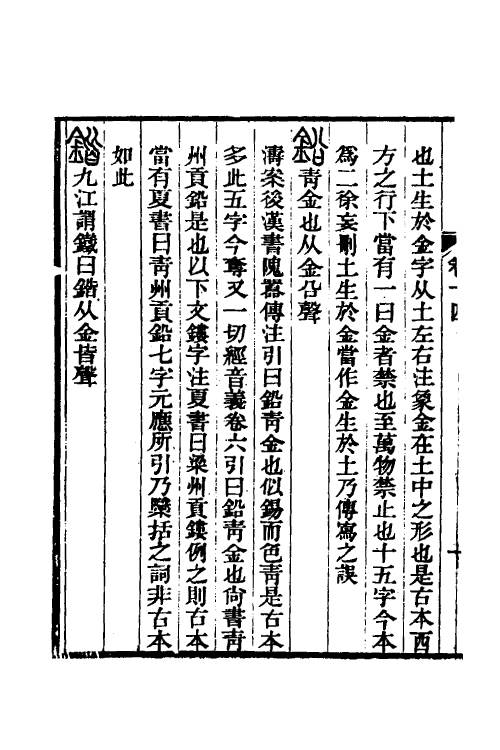 也土生於金字从土左右注象金在土中之形也是古本西
方之行下當有一曰金者禁也至萬物禁止也十五字今本
爲二徐妄刪土生於金當作金生於土乃傳寫之誤
鉛靑金也从金㕣聲
濤案後漢書隗囂傳注引曰鉛靑金也似錫而色靑是古本
多此五字今奪又一切經音義卷六引曰鉛靑金也尙書靑
州貢鉛是也以下文鏤字注夏書曰梁州貢鏤例之則古本
當有夏書曰靑州貢鉛七字元應所引乃櫽括之詞非古本
如此
鍇九江謂鐵曰鍇从金皆聲